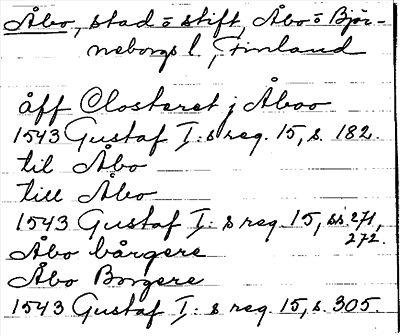 Åbo, stad o stift, Åbo o Björ-
neborgs l, Finland
åff Closteret j Åboo
1543 Gustaf I:s reg. 15, s. 182.
til Åbo
till Åbo
1543 Gustaf I:s reg. 15, ss. 271,
272.
Åbo bårgere
Åbo Borgere
1543 Gustaf I:s reg. 15, s. 305.